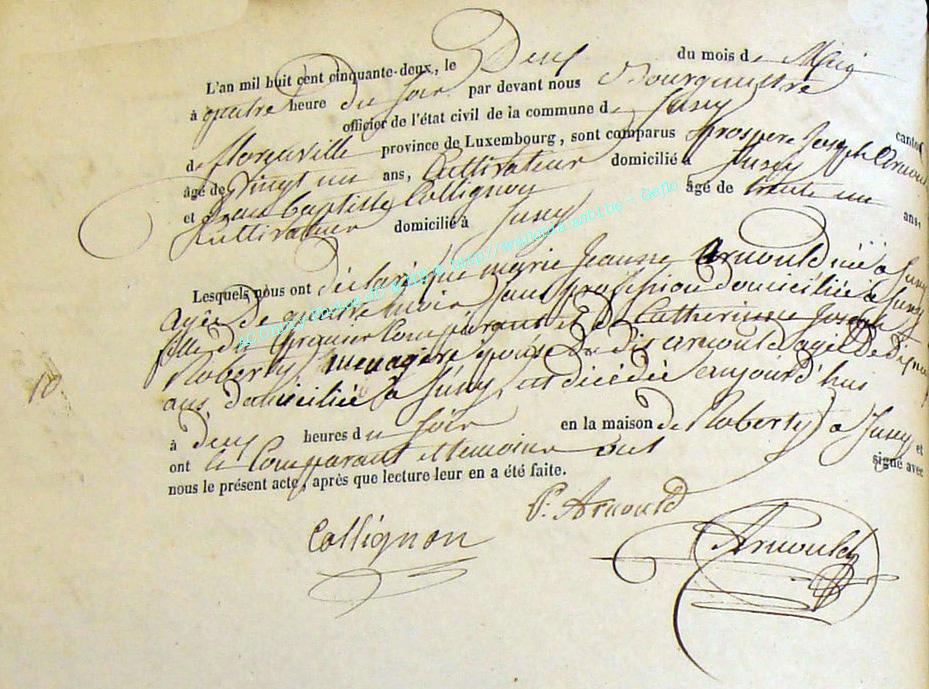 L'an mil huit cent cinquante-deux, le Deux du mois de Mai
à quatre heure du soir par devant nous Bourgmestre
officier de l'état civil de la commune de Jusey canton
de florenville province de Luxembourg, sont comparus prospere Joseph Arnould
âgé de vingt un ans, Cultivateur domicilié à Jusey
et Jean Baptiste Collignon âgé de trente un ans,
Cultivateur domicilié à Jusey
Lesquels nous ont déclaré que marie Jeanne Arnould née à Jusey
agée de quatre mois sans profession domiciliée à Jusey
fille du premier Comparant et de Catherinne Joseph
Roberty menagère épouse du dit arnould agée de
ans domiciliée à Jusey, est décédée aujourd'hui
à deux heures du soir en la maison de Roberty à Jusey et
ont le Comparant et temoins ont signé avec
nous le présent acte, après que lecture leur en a été faite.
10
P. Arnould
Collignon
Arnould